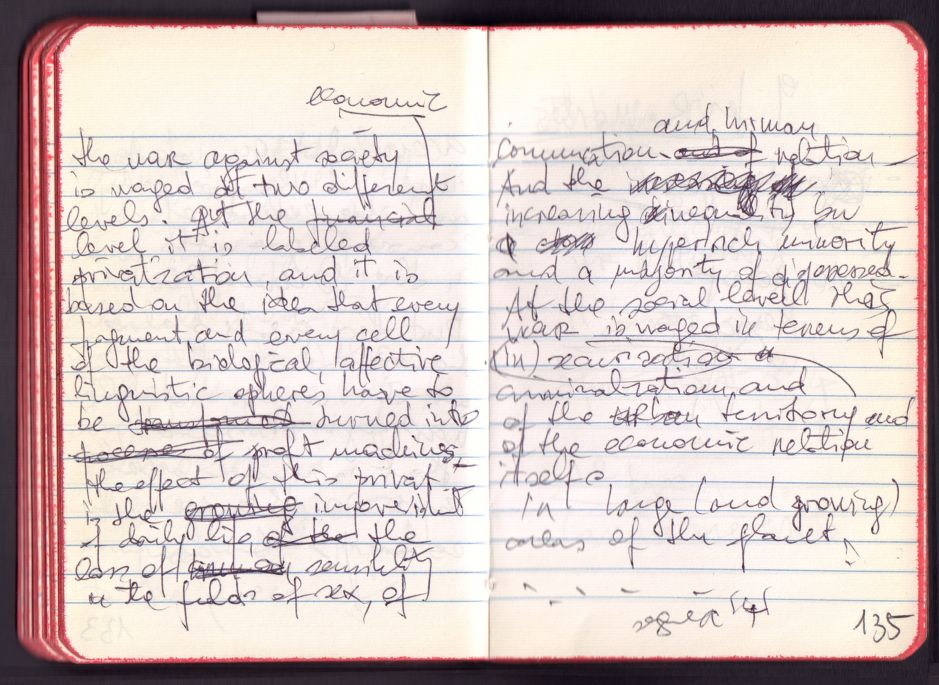 economic
the war against society
is waged at two different
levels. At the financial
level it is labeled
privatization, and it is
based on the idea that every
fragment and every cell
of the biological, affective
linguistic spheres have to
be transformed turned into
of profit machines.
The effect of this privat
is the growing impoverishmt
of daily life, of the the
loss of sensibility
in the fields of sex, of
and human
communication and relation
And the
increasing inequality in
a hyperrich minority
and a majority of dispossessed.
At the social level this
war is waged in terms of
(in) securisation
criminalization, and
of the urban territory and
of the economic relation
itself.
in large (and growing)
areas of the planet.
135